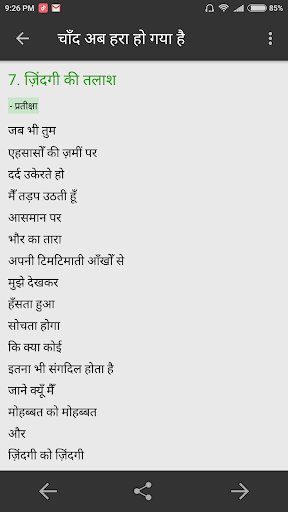 9:26 PM
85%
चाँद अब हरा हो गया है
7. ज़िंदगी की तलाश
- प्रतीक्षा
जब भी तुम
एहसासोँ की ज़मीं पर
दर्द उकेरते हो
मैँ तड़प उठती हूँ
आसमान पर
भौर का तारा
अपनी टिमटिमाती आँखोँ से
मुझे देखकर
हँसता हुआ
सोचता होगा
कि क्या कोई
इतना भी संगदिल होता है
जाने क्यूँ मैँ
मोहब्बत को मोहब्बत
और
ज़िंदगी को ज़िंदगी